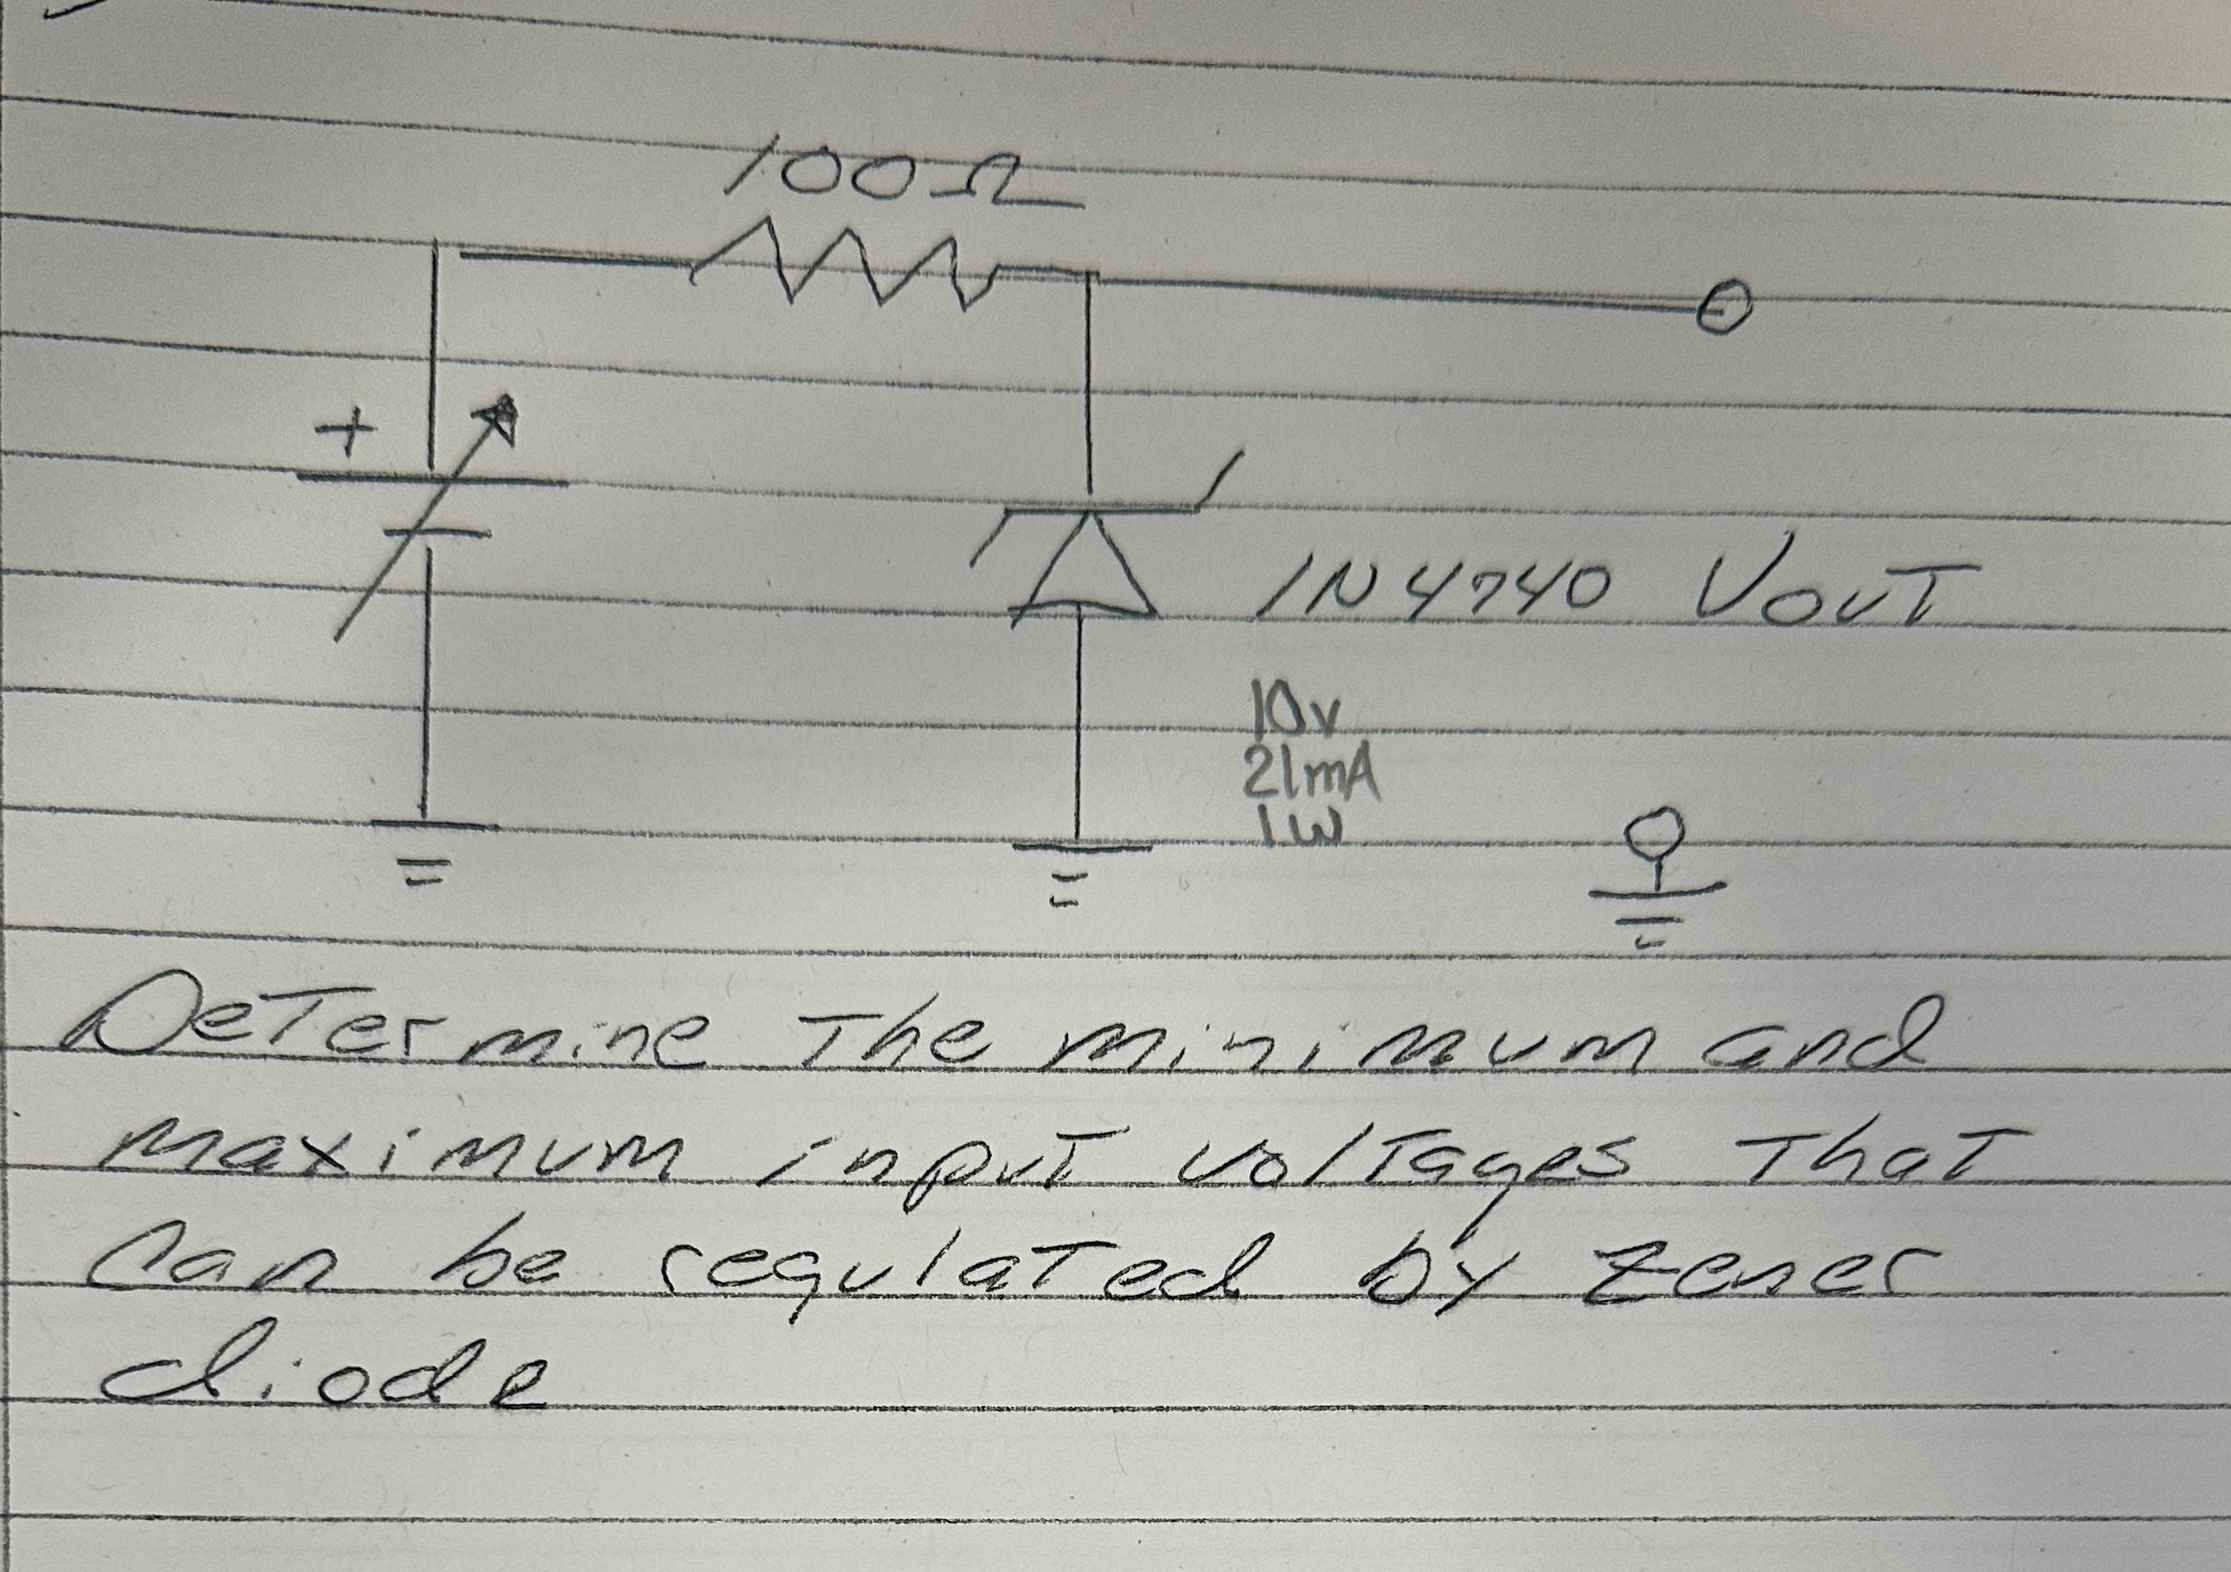 100Ω
+
1N4740 VOUT
10v
21mA
1W
DeTermine The minimum and
maximum inpuT volTages ThaT
can be regulaTed by zener
diode